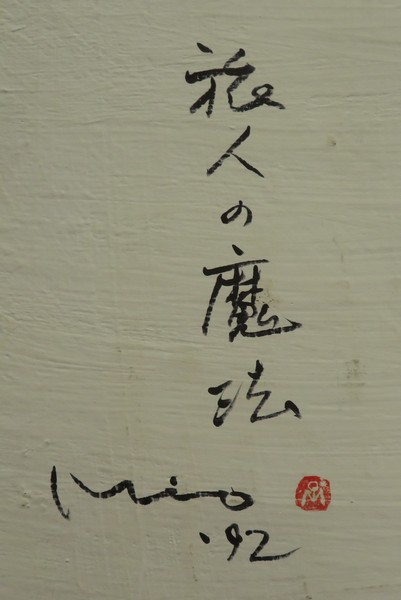 旅人の魔法
Mio
'92